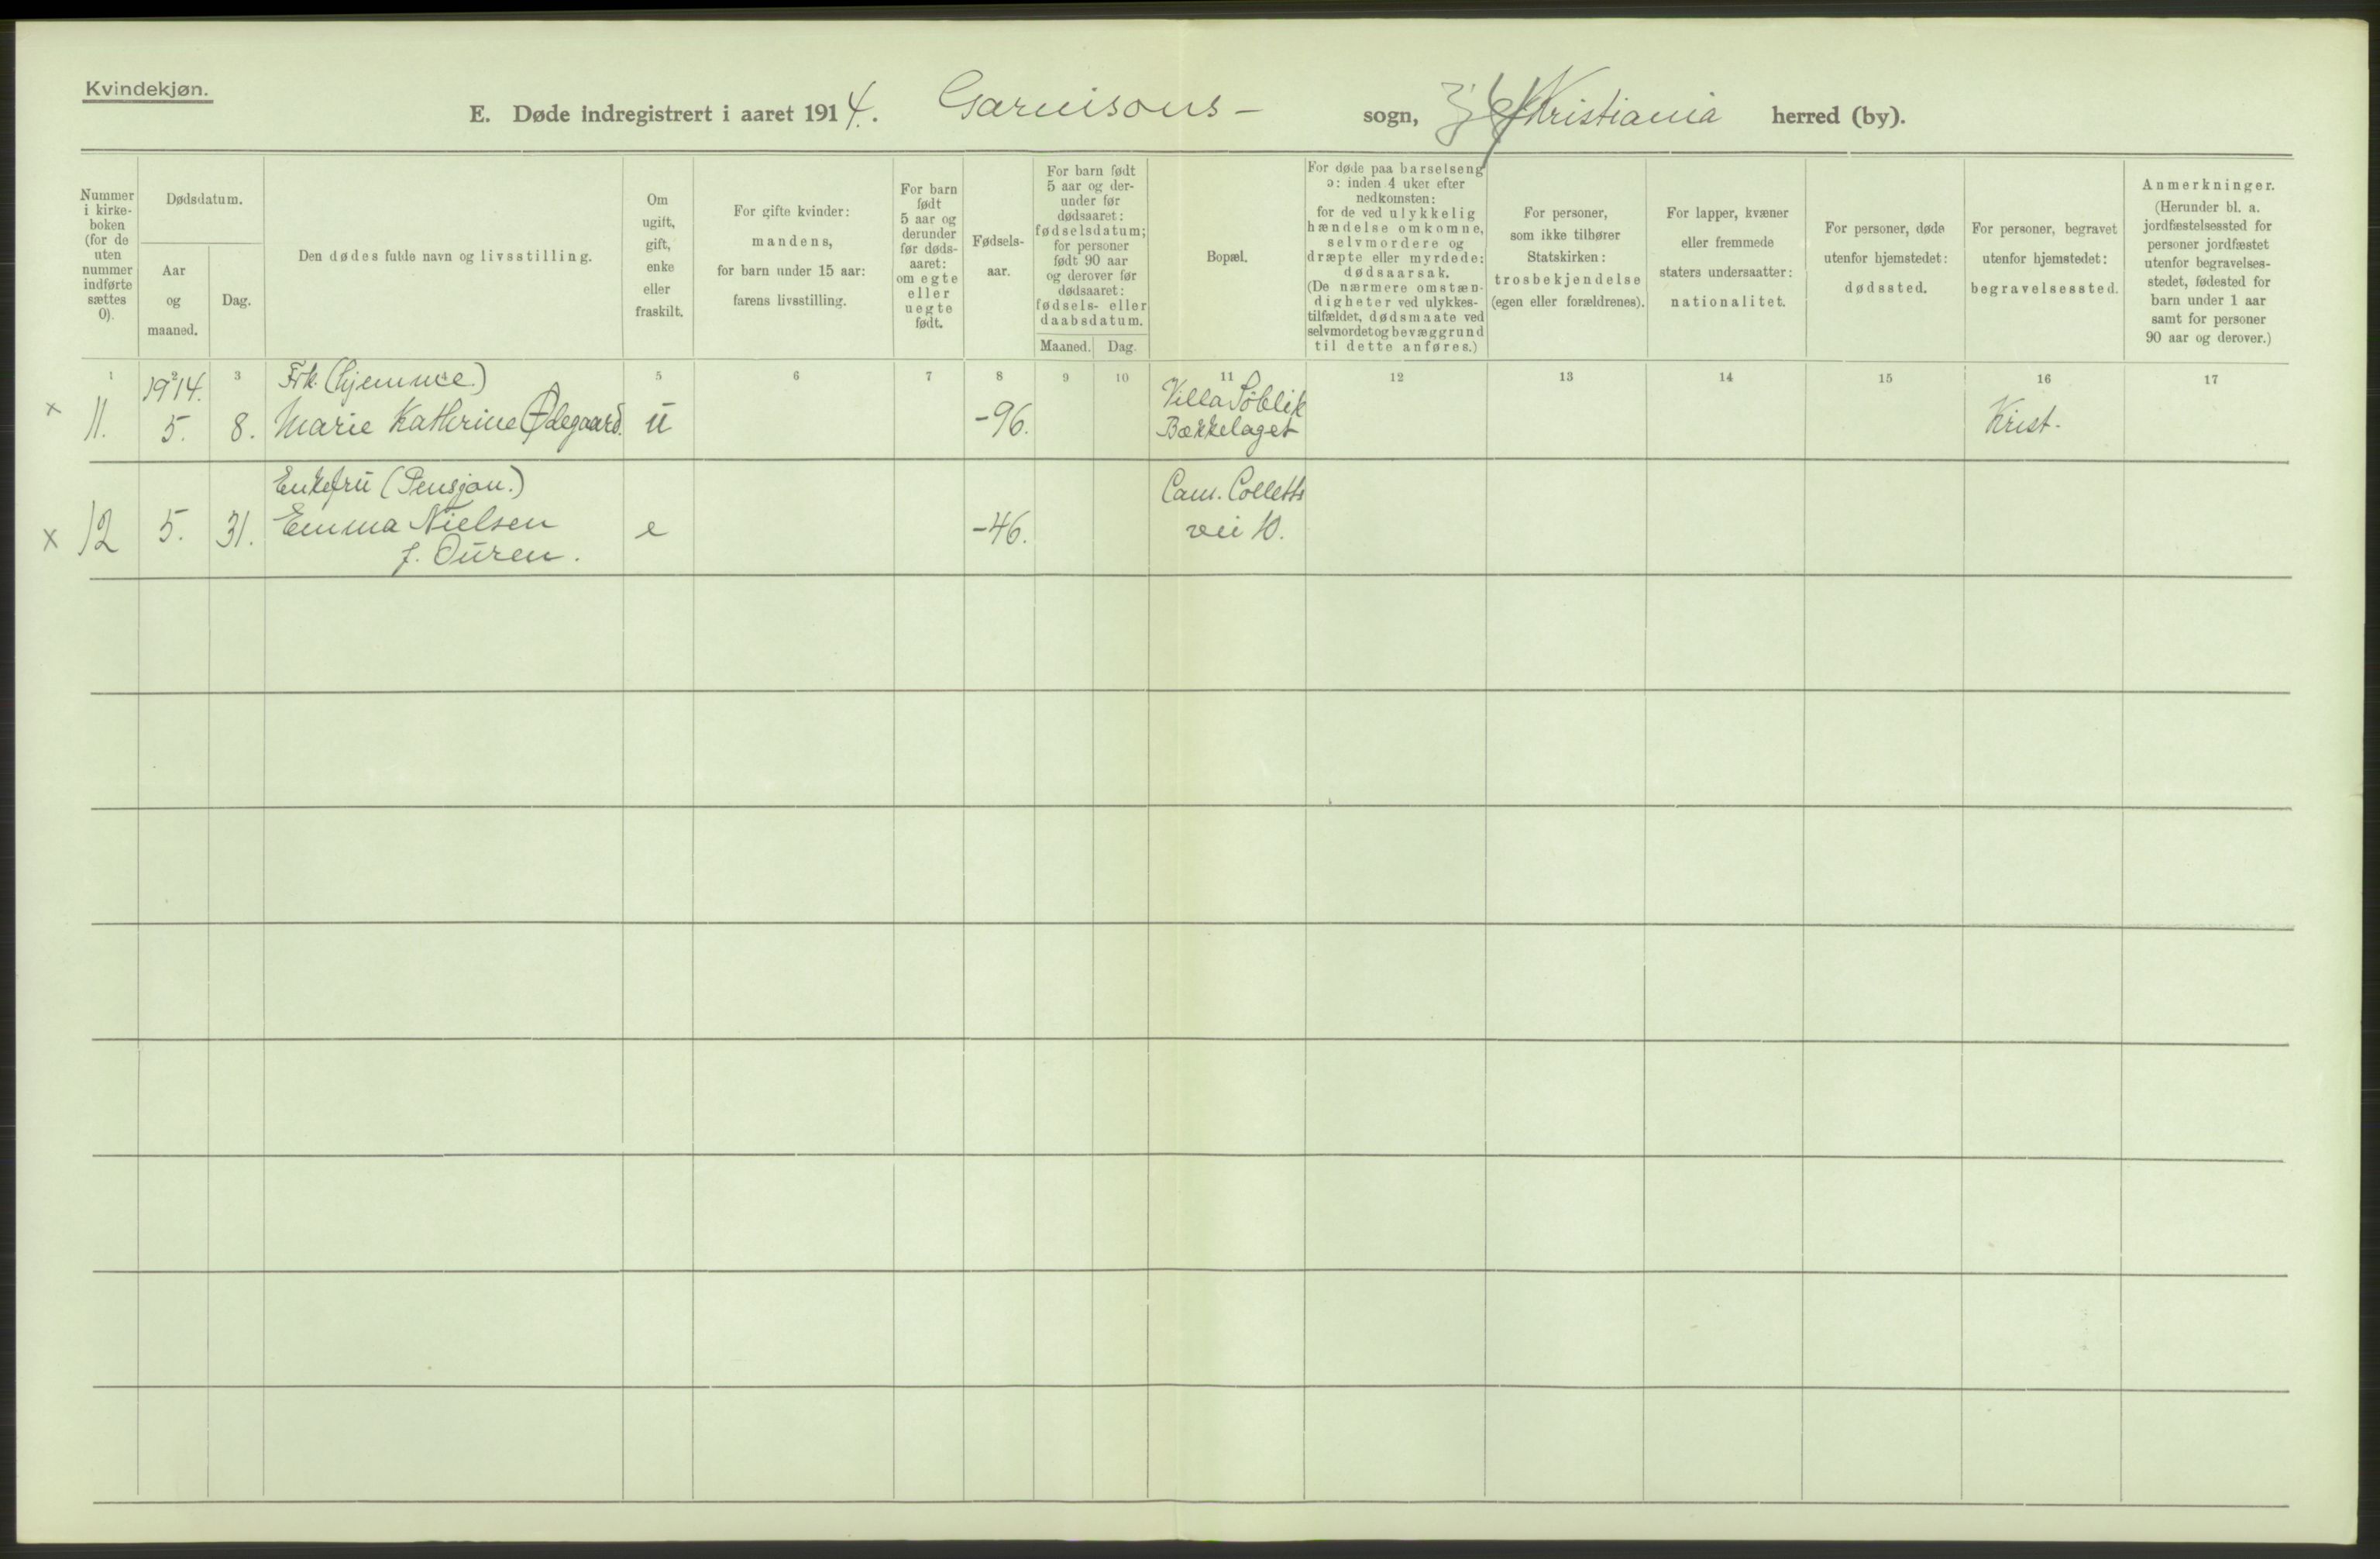 Kvindekjøn.
E. Døde indregistrert i aaret 1914. Garnisons- sogn, Kristiania herred (by).
Nummer i kirke- boken (for de uten nummer indførte sættes 0).
Dødsdatum.
Aar og maaned.
Dag.
Den dødes fulde navn og livsstilling.
Om ugift, gift, enke eller fraskilt.
For gifte kvinder: mandens, for barn under 15 aar: farens livsstilling.
For barn født 5 aar og derunder før døds- aaret: om egte eller uegte født.
Fødsels- aar.
For barn født 5 aar og der- under før dødsaaret: fødselsdatum; for personer født 90 aar og derover før dødsaaret: fødsels- eller daabsdatum.
Maaned. Dag.
Bopæl.
For døde paa barselseng ɔ: inden 4 uker efter nedkomsten: for de ved ulykkelig hændelse omkomne, selvmordere og dræpte eller myrdede: dødsaarsak. (De nærmere omstæn- digheter ved ulykkes- tilfældet, dødsmaate ved selvmordet og bevæggrund til dette anføres.)
For personer, som ikke tilhører Statskirken: trosbekjendelse (egen eller forældrenes).
For lapper, kvæner eller fremmede staters undersaatter: nationalitet.
For personer, døde utenfor hjemstedet: dødssted.
For personer, begravet utenfor hjemstedet: begravelsessted.
Anmerkninger. (Herunder bl. a. jordfæstelsessted for personer jordfæstet utenfor begravelses- stedet, fødested for barn under 1 aar samt for personer 90 aar og derover.)
1 2 3 4 5 6 7 8 9 10 11 12 13 14 15 16 17
1914. Frk. (hjemme.) Villa Söblik
x 11. 5. 8. Marie Kathrine Ødegaard. u -96. Bækkelaget Krist.
Enkefru (Pensjon.) Cam. Colletts
x 12 5. 31. Emma Nielsen e -46. vei 10.
f. Ouren.